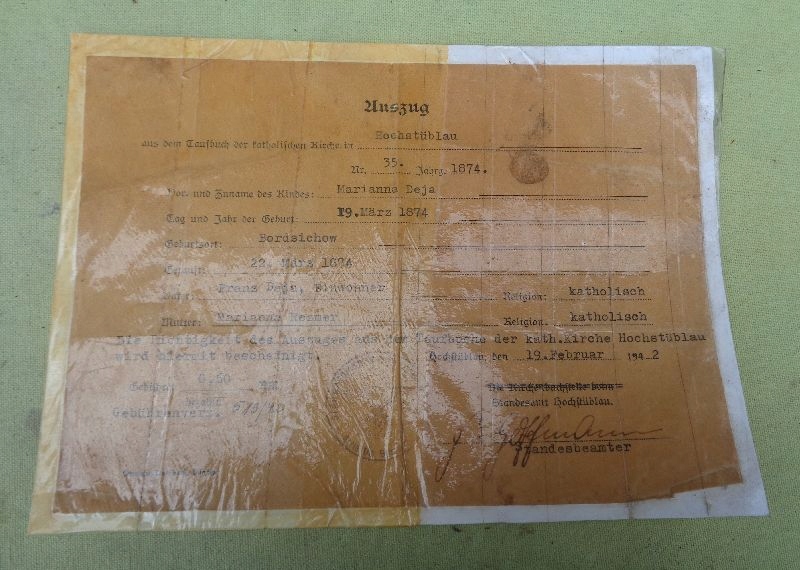 Auszug
aus dem Taufbuch der katholischen Kirche in Hochstüblau
Nr. 35. Jahrg. 1874.
Vor- und Zuname des Kindes: Marianna Deja
Tag und Jahr der Geburt: 19.März 1874
Geburtsort: Bordsichow
Getauft: 22. März 1874
Vater: Franz Deja, Einwohner Religion: katholisch
Mutter: Marianna Religion: katholisch
Die Richtigkeit des Auszuges aus dem Taufbuche der kath.Kirche Hochstüblau
wird hiermit bescheinigt. Hochstüblau, den 19. Februar 194 2
Gebühr: 0,60 RM
Gebührenverz.
Standesamt Hochstüblau.
Hoffmann
Standesbeamter